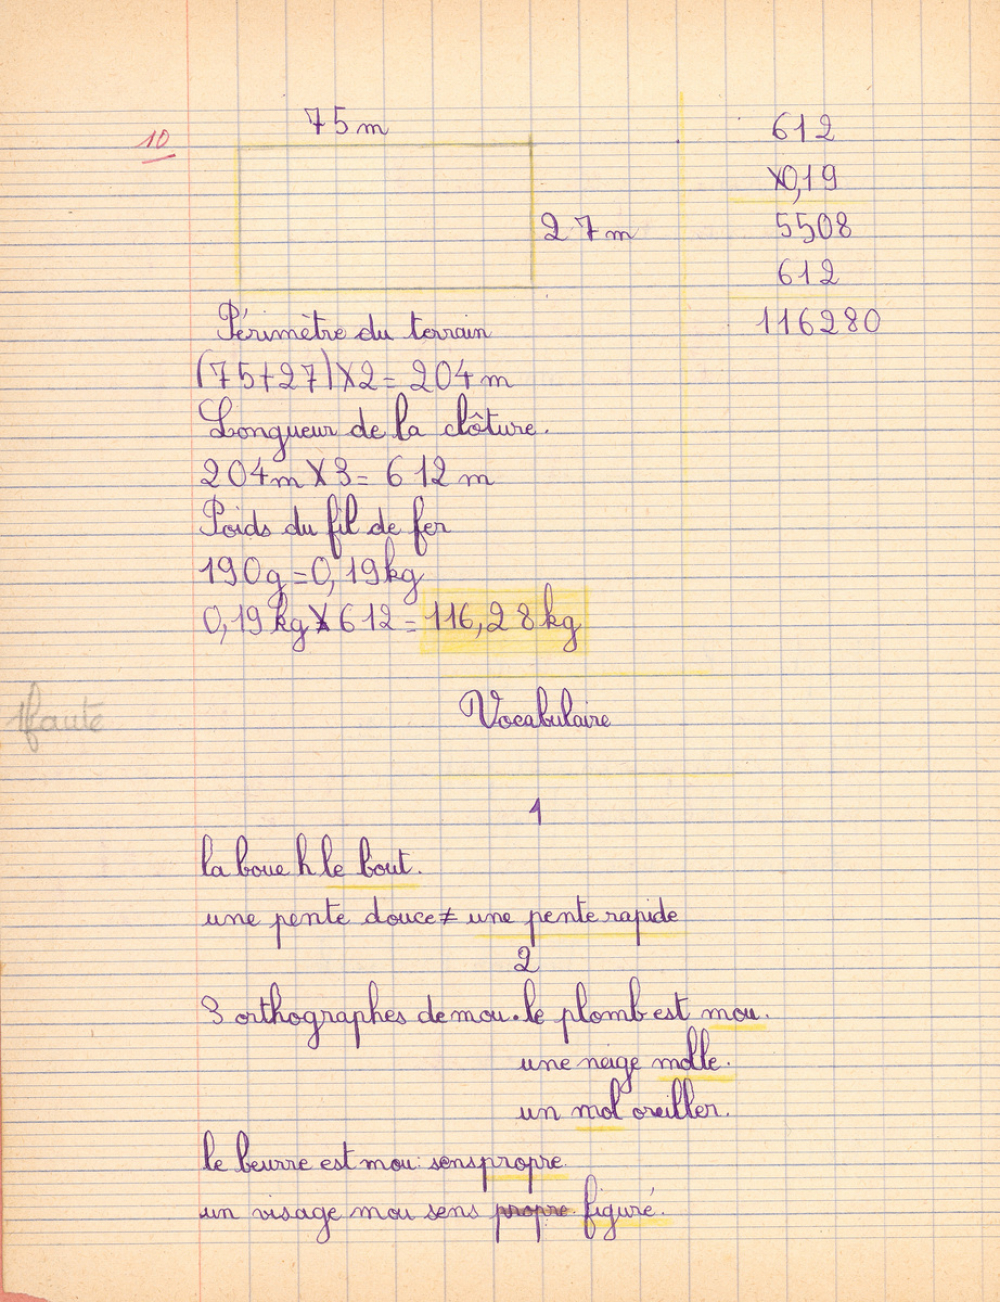 10
75 m
27 m
612
x0,19
5508
612
116280
Périmètre du terrain
(75+27)x2 = 204 m
Longueur de la clôture.
204m x 3 = 612 m
Poids du fil de fer
190g = 0,19kg
0,19 kg x 612 = 116,28 kg
1 faute
Vocabulaire
1
la boue h le bout.
une pente douce ≠ une pente rapide
2
3 orthographes de mou. le plomb est mou.
une neige molle.
un mol oreiller.
le beurre est mou: sens propre.
un visage mou sens propre. figuré.